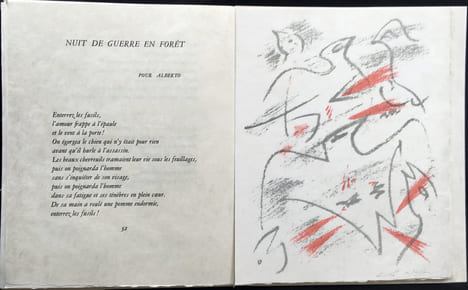 NUIT DE GUERRE EN FORÊT
POUR ALBERTO
Enterrez les fusils,
l'amour frappe à l'épaule
et le vent à la porte !
On égorgea le chien qui n'y était pour rien
avant qu'il hurle à l'assassin.
Les beaux chevreuils tramaient leur vie sous les feuillages,
puis on poignarda l'homme
sans s'inquiéter de son visage,
puis on poignarda l'homme
dans sa fatigue et ses ténèbres en plein cœur.
De sa main a roulé une pomme endormie,
enterrez les fusils !
52